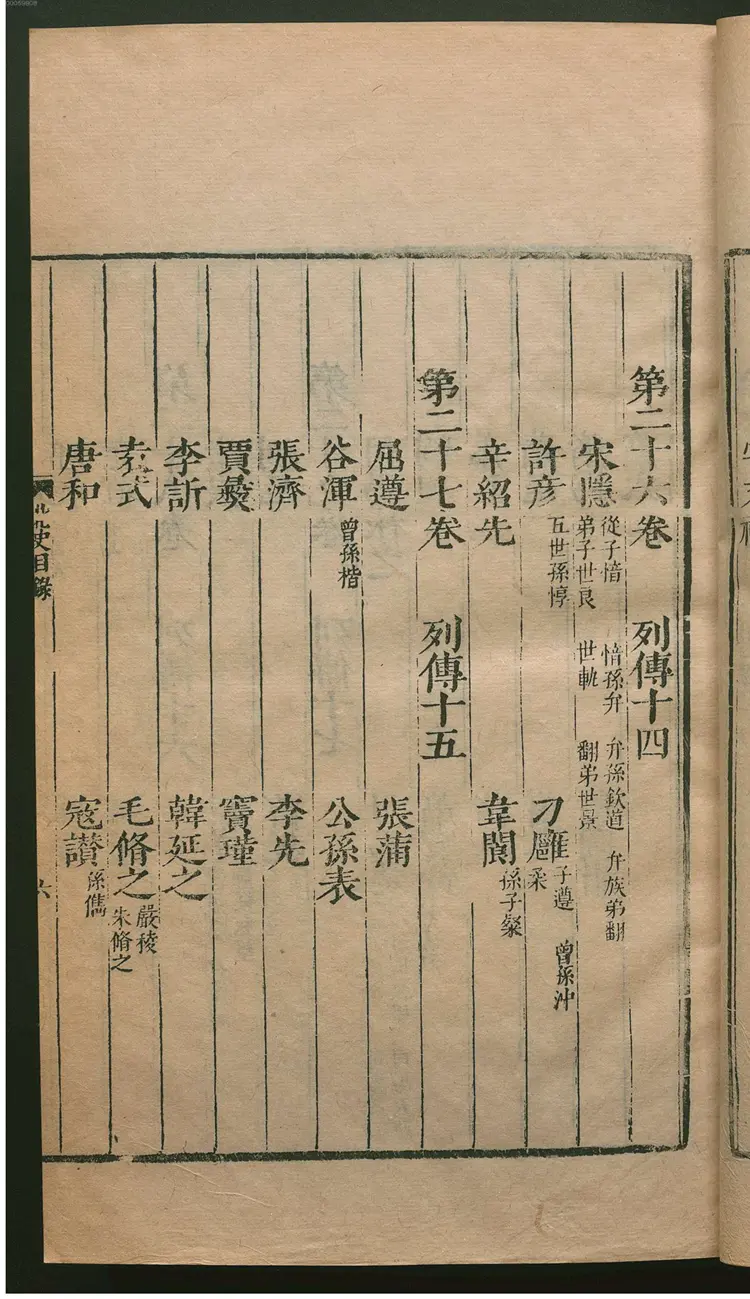 第二十六卷 列傳十四
宋隱 從子愔 愔孫弁 弁孫欽道 弁族弟翻
弟子世良 世軌 翻弟世景
許彥 五世孫惇 刁雍 子遵 曾孫沖
柔
辛紹先 韋閬 孫子粲
第二十七卷 列傳十五
屈遵 張蒲
谷渾 曾孫楷 公孫表
張濟 李先
賈彝 竇瑾
李訢 韓延之
袁式 毛脩之 嚴稜
朱脩之
唐和 寇讃 孫儁
北史目錄
六
00059808